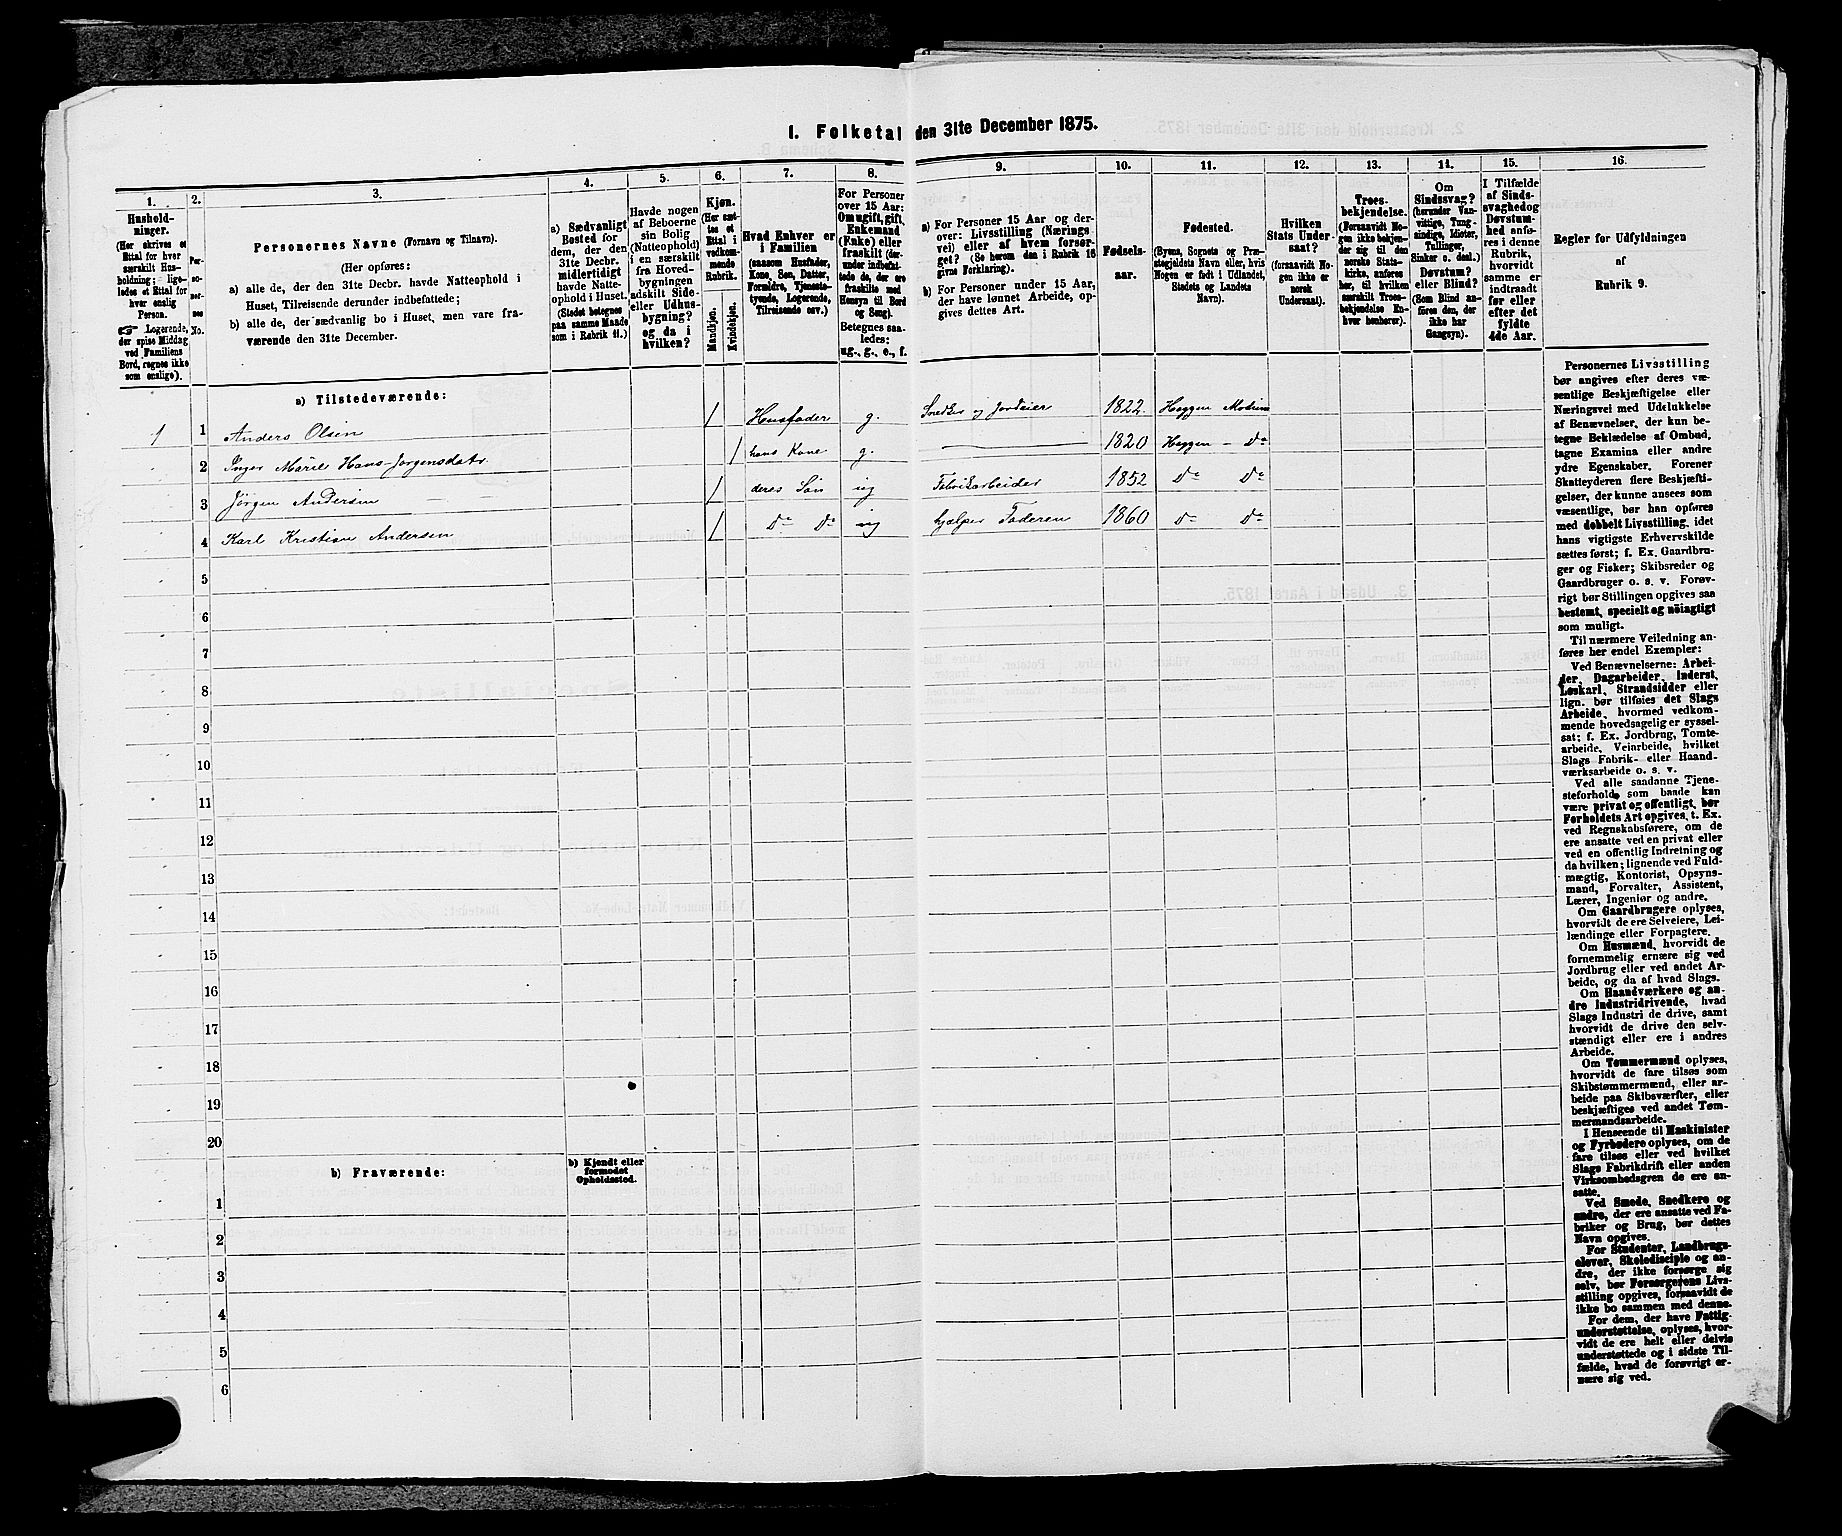 I. Folketal den 31te December 1875.
1.
Hushold-
ninger.
(Her skrives et
Ettal for hver
særskilt Hus-
holdning; lige-
ledes et Ettal for
hver enslig
Person.
☞ Logerende,
der spise Middag
ved Familiens
Bord, regnes ikke
som enslige).
2.
Per-
so-
ner-
nes
No.
3.
Personernes Navne (Fornavn og Tilnavn).
(Her opføres:
a) alle de, der den 31te Decbr. havde Natteophold i
Huset, Tilreisende derunder indbefattede;
b) alle de, der sædvanlig bo i Huset, men vare fra-
værende den 31te December.
4.
a) Sædvanligt
Bosted for
dem, der den
31te Decbr.
midlertidigt
havde Natte-
ophold i Huset.
(Stedet betegnes
paa samme Maade
som i Rubrik 11.)
5.
Havde nogen
af Beboerne
sin Bolig
(Natteophold)
i en særskilt
fra Hoved-
bygningen
adskilt Side-
eller Udhus-
bygning?
og da i
hvilken?
6.
Kjøn.
(Her sæt-
tes et
Ettal i
vedkom-
mende
Rubrik.
Mandkjøn.
Kvindekjøn.
7.
Hvad Enhver er
i Familien
(saasom Husfader,
Kone, Søn, Datter,
Forældre, Tjeneste-
tyende, Logerende,
Tilreisende osv.)
8.
For Personer
over 15 Aar:
Om ugift, gift,
Enkemand
(Enke) eller
fraskilt (der-
under indbefat-
tede de, der ere
fraskilte med
Hensyn til Bord
og Seng).
Betegnes saa-
ledes:
ug., g., e., f.
9.
a) For Personer 15 Aar og der-
over: Livsstilling (Nærings
vei) eller af hvem forsør-
get? (Se herom den i Rubrik 16
givne Forklaring).
b) For Personer under 15 Aar,
der have lønnet Arbeide, op-
gives dettes Art.
10.
Fødsels-
aar.
11.
Fødested.
(Byens, Sognets og Præ-
stegjeldets Navn eller, hvis
Nogen er født i Udlandet,
Stedets og Landets
Navn).
12.
Hvilken
Stats Under-
saat?
(forsaavidt No-
gen ikke er
norsk
Undersaat).
13.
Troes-
bekjendelse.
(Forsaavidt No-
gen ikke bekjen-
der sig til den
norske Stats-
kirke, anføres
her, til hvilken
særskilt Troes-
bekjendelse En-
hver henhører).
14.
Om
Sindssvag?
(herunder Van-
vittige, Tung-
sindige, Idioter,
Tullinger,
Sinker o. desl.)
Døvstum?
eller Blind?
(Som Blind an-
føres den, der
ikke har
Gangsyn).
15.
I Tilfælde
af Sinds-
svaghed og
Døvstum-
hed anfø-
res i denne
Rubrik,
hvorvidt
samme er
indtraadt
før eller
efter det
fyldte
4de Aar.
16.
Regler for Udfyldningen
af
Rubrik 9.
a) Tilstedeværende:
1 1 Anders Olsen 1 Husfader g. Snedker og Jordeier 1822. Heggen Modum
2 Inger Marie Hans-Jørgensdatr 1 hans Kone g. 1820 Heggen - Do
3 Jørgen Andersen 1 deres Søn ug Fabrikarbeider 1852 Do Do
4 Karl Kristian Andersen 1 Do Do ug hjælper Faderen 1860 Do Do
5
6
7
8
9
10
11
12
13
14
15
16
17
18
19
20
b) Fraværende:
b) Kjendt eller
formodet
Opholdssted.
1
2
3
4
5
6
Personernes Livsstilling
bør angives efter deres væ-
sentlige Beskjæftigelse eller
Næringsvei med Udelukkelse
af Benævnelser, der kun be-
tegne Beklædelse af Ombud,
tagne Examina eller andre
ydre Egenskaber. Forener
Skatteyderen flere Beskjæfti-
gelser, der kunne ansees som
væsentlige, bør han opføres
med dobbelt Livsstilling, idet
hans vigtigste Erhvervskilde
sættes først; f. Ex. Gaardbru-
ger og Fisker; Skibsreder og
Gaardbruger o. s. v. Forøv-
rigt bør Stillingen opgives saa
bestemt, specielt og nöiagtigt
som muligt.
Til nærmere Veiledning an-
føres her endel Exempler:
Ved Benævnelserne: Arbei-
der, Dagarbeider, Inderst,
Løskarl, Strandsidder eller
lign. bør tilføies det Slags
Arbeide, hvormed vedkom-
mende hovedsagelig er syssel-
sat; f. Ex. Jordbrug, Tomte-
arbeide, Veinarbeide, hvilket
Slags Fabrik- eller Haand-
værksarbeide o. s. v.
Ved alle saadanne Tjene-
steforhold, som baade kan
være privat og offentligt, bør
Forholdets Art opgives, t. Ex.
ved Regnskabsførere, om de
ere ansatte ved en privat eller
ved en offentlig Indretning og
da hvilken; lignende ved Fuld-
mægtig, Kontorist, Opsyns-
mand, Forvalter, Assistent,
Lærer, Ingeniør og andre.
Om Gaardbrugere oplyses,
hvorvidt de ere Selveiere, Lei-
lændinge eller Forpagtere.
Om Husmænd, hvorvidt de
fornemmelig ernære sig ved
Jordbrug eller ved andet Ar-
beide, og da af hvad Slags.
Om Haandværkere og an-
dre Industridrivende, hvad
Slags Industri de drive, samt
hvorvidt de drive den selv-
stændigt eller ere i andres
Arbeide.
Om Tømmermænd oplyses,
hvorvidt de fare tilsøs som
Skibstømmermænd, eller ar-
beide paa Skibsværfter, eller
beskjæftiges ved andet Tøm-
mermandsarbeide.
I Henseende til Maskinister
og Fyrbødere oplyses, om de
fare tilsøs eller ved hvilket
Slags Fabrikdrift eller anden
Virksomhedsgren de ere an-
satte.
Ved Smede, Snedkere og
andre, der ere ansatte ved Fa-
briker og Brug, bør dettes
Navn opgives.
For Studenter, Landbrugs-
elever, Skoledisciple og an-
dre, der ikke forsørge sig
selv, bør Forsørgerens Livs-
stilling opgives, forsaavidt de
ikke bo sammen med denne.
For dem, der have Fattig-
understøttelse, oplyses, hvor-
vidt de ere helt eller delvis
understøttede og i sidste Til-
fælde, hvad de forøvrigt er-
nære sig ved.